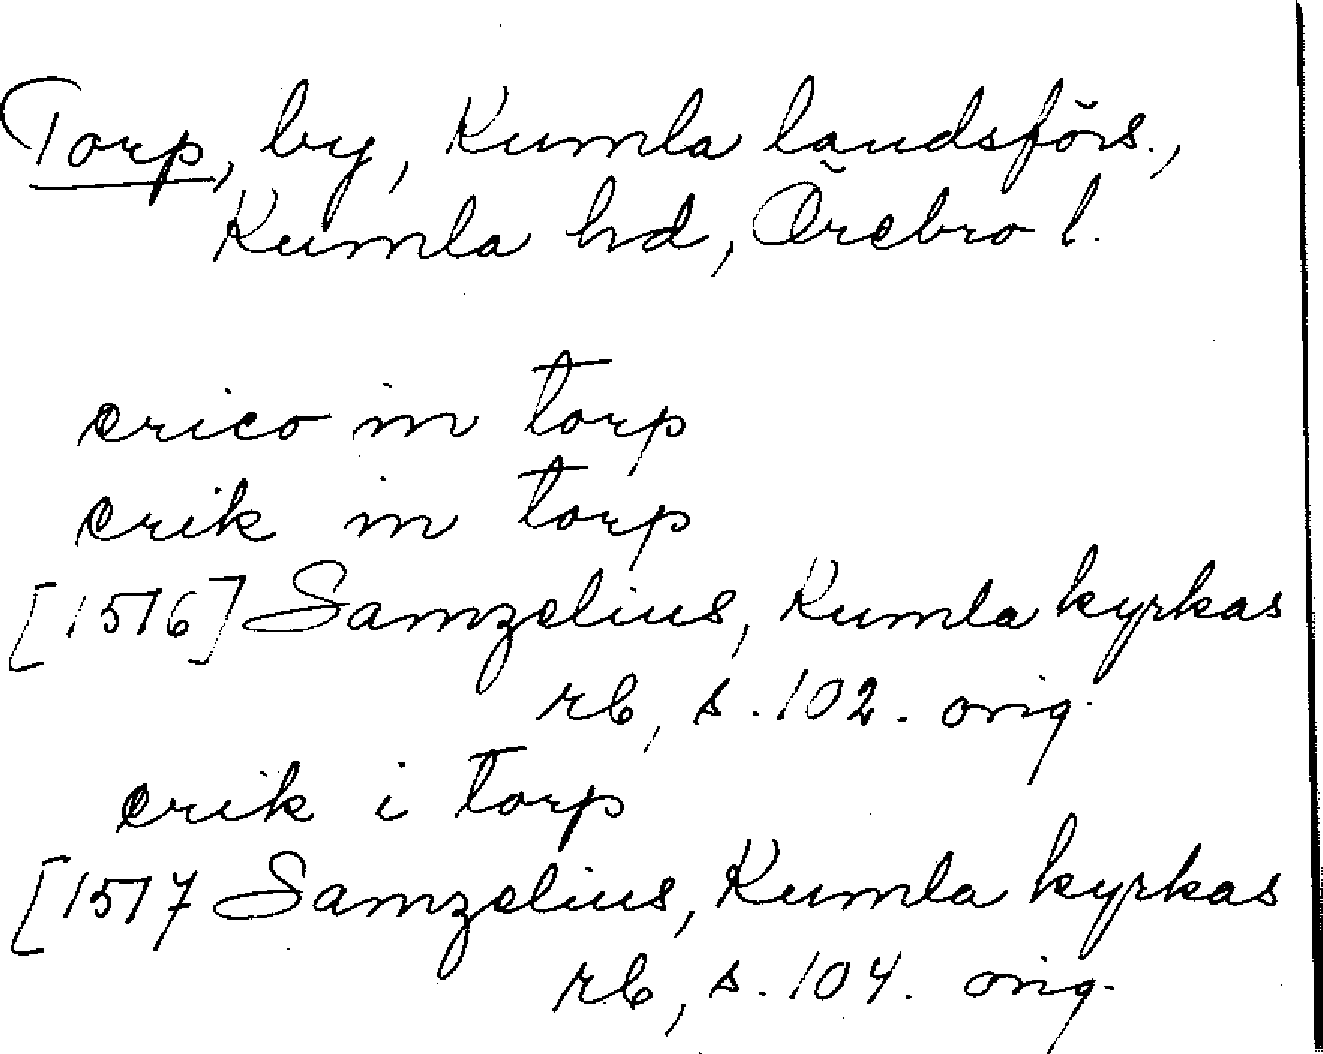 Torp, by, Kumla landsförs.,
Kumla hd, Örebro l.
erico in torp
erik in torp
[1516] Samzelius, Kumla kyrkas
rb, s. 102. orig.
erik i torp
[1517 Samzelius, Kumla kyrkas
rb, s. 104. orig.